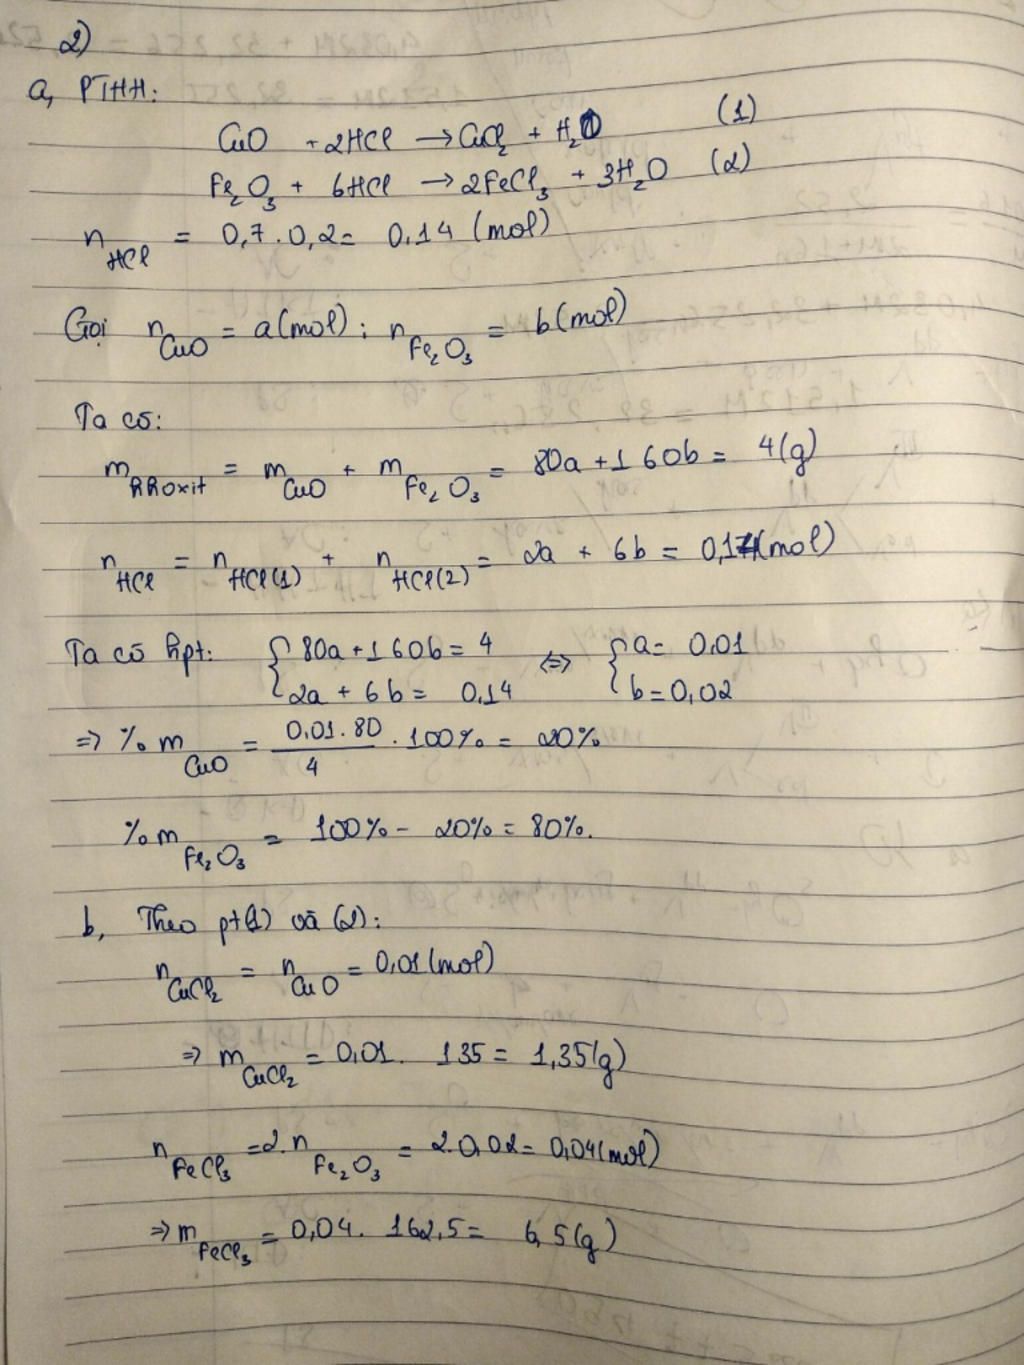 2)
a, PTHH:
CuO + 2HCl → CuCl₂ + H₂O (1)
Fe₂O₃ + 6HCl → 2FeCl₃ + 3H₂O (2)
n_HCl = 0,7 . 0,2 = 0,14 (mol)
Gọi n_CuO = a (mol) ; n_Fe₂O₃ = b (mol)
Ta có:
m_hhoxit = m_CuO + m_Fe₂O₃ = 80a + 160b = 4 (g)
n_HCl = n_HCl(1) + n_HCl(2) = 2a + 6b = 0,14 (mol)
Ta có hpt: { 80a + 160b = 4 ⇔ { a = 0.01
2a + 6b = 0,14 b = 0,02
⇒ % m_CuO = 0,01 . 80 / 4 . 100% = 20%
% m_Fe₂O₃ = 100% - 20% = 80%.
b, Theo pt (1) và (2):
n_CuCl₂ = n_CuO = 0,01 (mol)
⇒ m_CuCl₂ = 0,01 . 135 = 1,35 (g)
n_FeCl₃ = 2. n_Fe₂O₃ = 2. 0,02 = 0,04 (mol)
⇒ m_FeCl₃ = 0,04 . 162,5 = 6,5 (g)